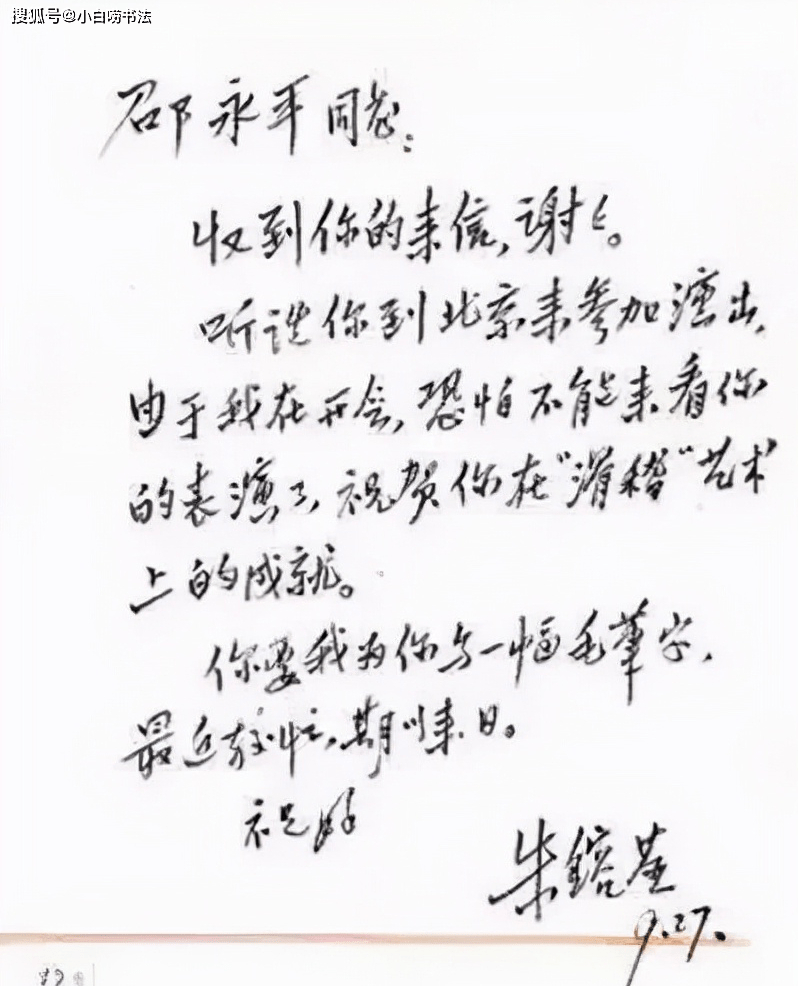 搜狐号@小白唠书法
邵永平同志：
收到你的来信，谢々。
听说你到北京来参加演出，
由于我在开会，恐怕不能来看你
的表演了，祝贺你在“滑稽”艺术
上的成就。
你要我为你写一幅毛筆字，
最近较忙，期以来日。
祝好
朱鎔基
9.27.